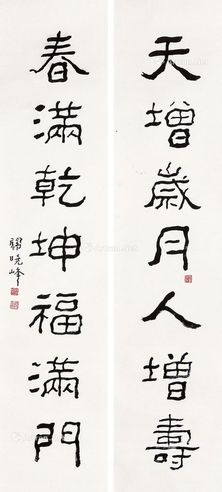 天增歲月人增壽
春滿乾坤福滿門